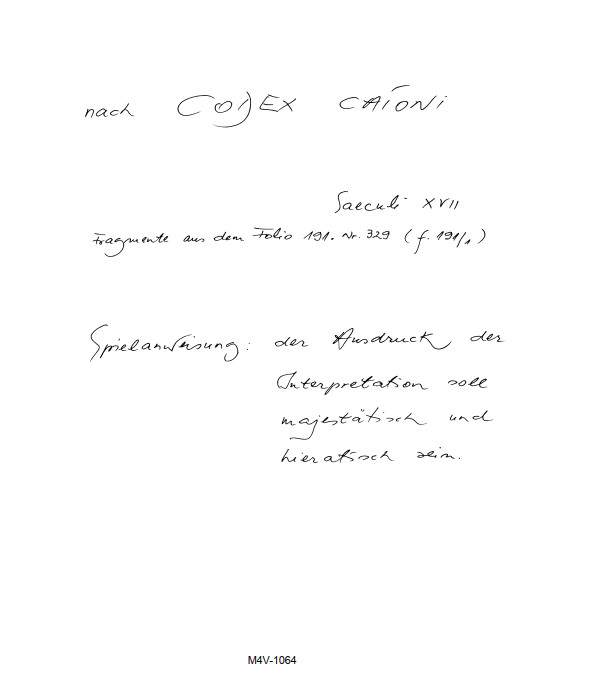 nach CODEX CAIONI
Saeculi XVII
Fragmente aus dem Folio 191. Nr. 329 (f. 191/1)
Spielanweisung: der Ausdruck der
Interpretation soll
majestätisch und
hieratisch sein.
M4V-1064